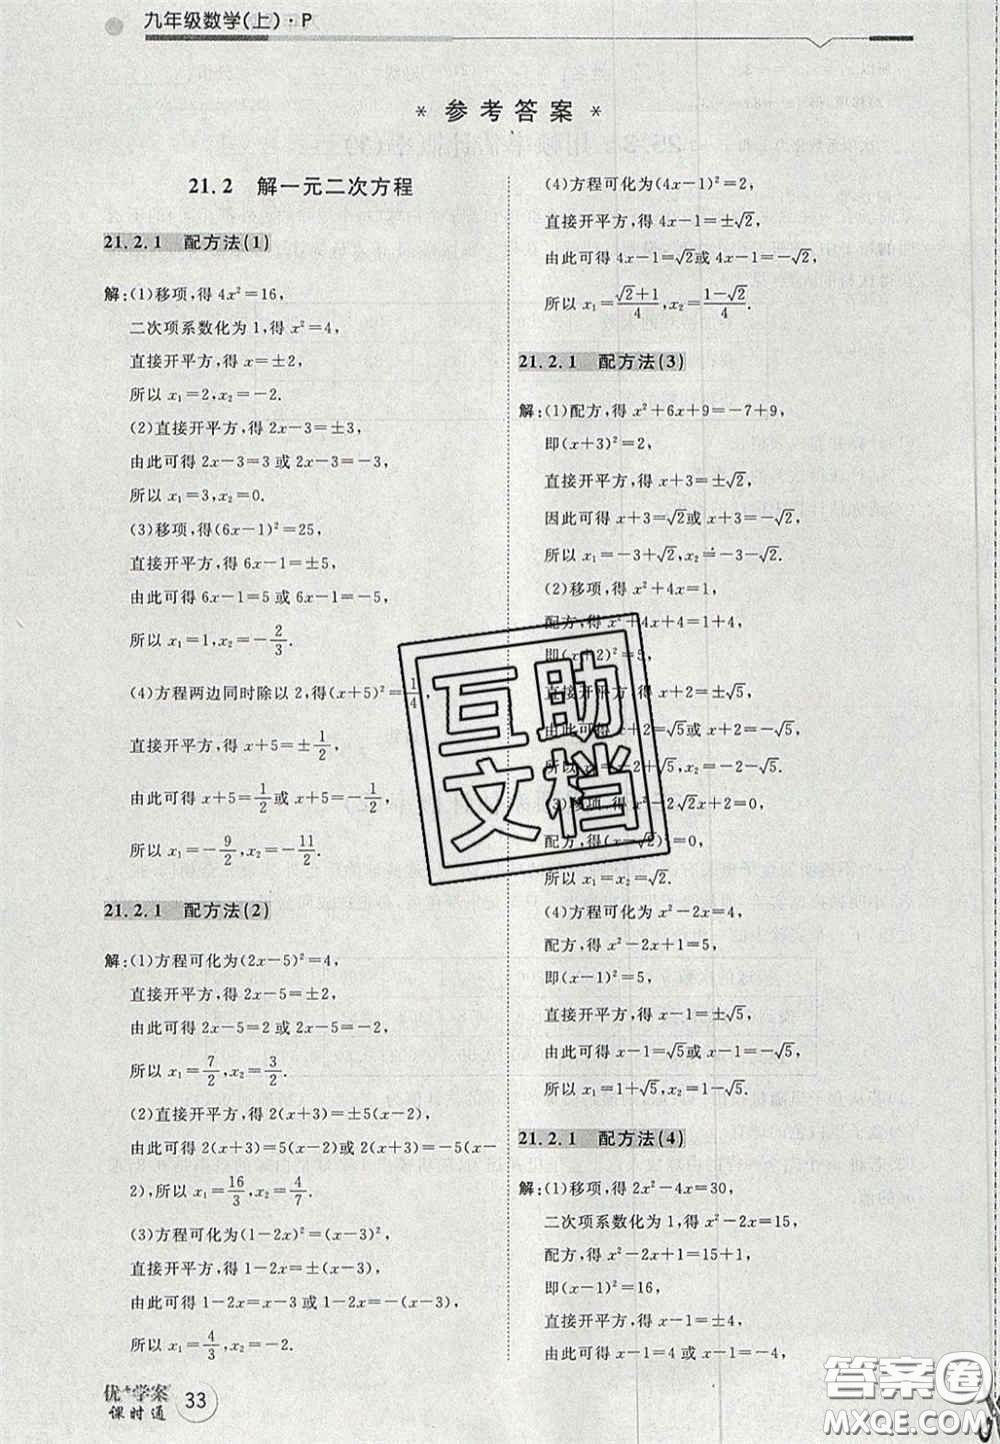 九年级数学(上)·P
* 参考答案 *
21.2 解一元二次方程
21.2.1 配方法(1)
解:(1)移项,得 4x²=16,
二次项系数化为 1,得 x²=4,
直接开平方,得 x=±2,
所以 x₁=2,x₂=-2.
(2)直接开平方,得 2x-3=±3,
由此可得 2x-3=3 或 2x-3=-3,
所以 x₁=3,x₂=0.
(3)移项,得(6x-1)²=25,
直接开平方,得 6x-1=±5,
由此可得 6x-1=5 或 6x-1=-5,
所以 x₁=1,x₂=-2/3.
(4)方程两边同时除以 2,得(x+5)²=1/4,
直接开平方,得 x+5=±1/2,
由此可得 x+5=1/2 或 x+5=-1/2,
所以 x₁=-9/2,x₂=-11/2.
21.2.1 配方法(2)
解:(1)方程可化为(2x-5)²=4,
直接开平方,得 2x-5=±2,
由此可得 2x-5=2 或 2x-5=-2,
所以 x₁=7/2,x₂=3/2.
(2)直接开平方,得 2(x+3)=±5(x-2),
由此可得 2(x+3)=5(x-2)或 2(x+3)=-5(x-
2),所以 x₁=16/3,x₂=4/7.
(3)方程可化为(1-2x)²=(x-3)²,
直接开平方,得 1-2x=±(x-3),
由此可得 1-2x=x-3 或 1-2x=-(x-3),
所以 x₁=4/3,x₂=-2.
(4)方程可化为(4x-1)²=2,
直接开平方,得 4x-1=±√2,
由此可得 4x-1=√2或 4x-1=-√2,
所以 x₁=(√2+1)/4,x₂=(1-√2)/4.
21.2.1 配方法(3)
解:(1)配方,得 x²+6x+9=-7+9,
即(x+3)²=2,
直接开平方,得 x+3=±√2,
因此可得 x+3=√2或 x+3=-√2,
所以 x₁=-3+√2,x₂=-3-√2.
(2)移项,得 x²+4x=1,
配方,得 x²+4x+4=1+4,
即(x+2)²=5,
直接开平方,得 x+2=±√5,
由此可得 x+2=√5或 x+2=-√5,
所以 x₁=-2+√5,x₂=-2-√5.
(3)移项,得 x²-2√2x+2=0,
配方,得(x-√2)²=0,
所以 x₁=x₂=√2.
(4)方程可化为 x²-2x=4,
配方,得 x²-2x+1=5,
即(x-1)²=5,
直接开平方,得 x-1=±√5,
由此可得 x-1=√5或 x-1=-√5,
所以 x₁=1+√5,x₂=1-√5.
21.2.1 配方法(4)
解:(1)移项,得 2x²-4x=30,
二次项系数化为 1,得 x²-2x=15,
配方,得 x²-2x+1=15+1,
即(x-1)²=16,
直接开平方,得 x-1=±4,
由此可得 x-1=4 或 x-1=-4,
优+学案
课时通
33
互助
文档
答案圈
MXQE.COM